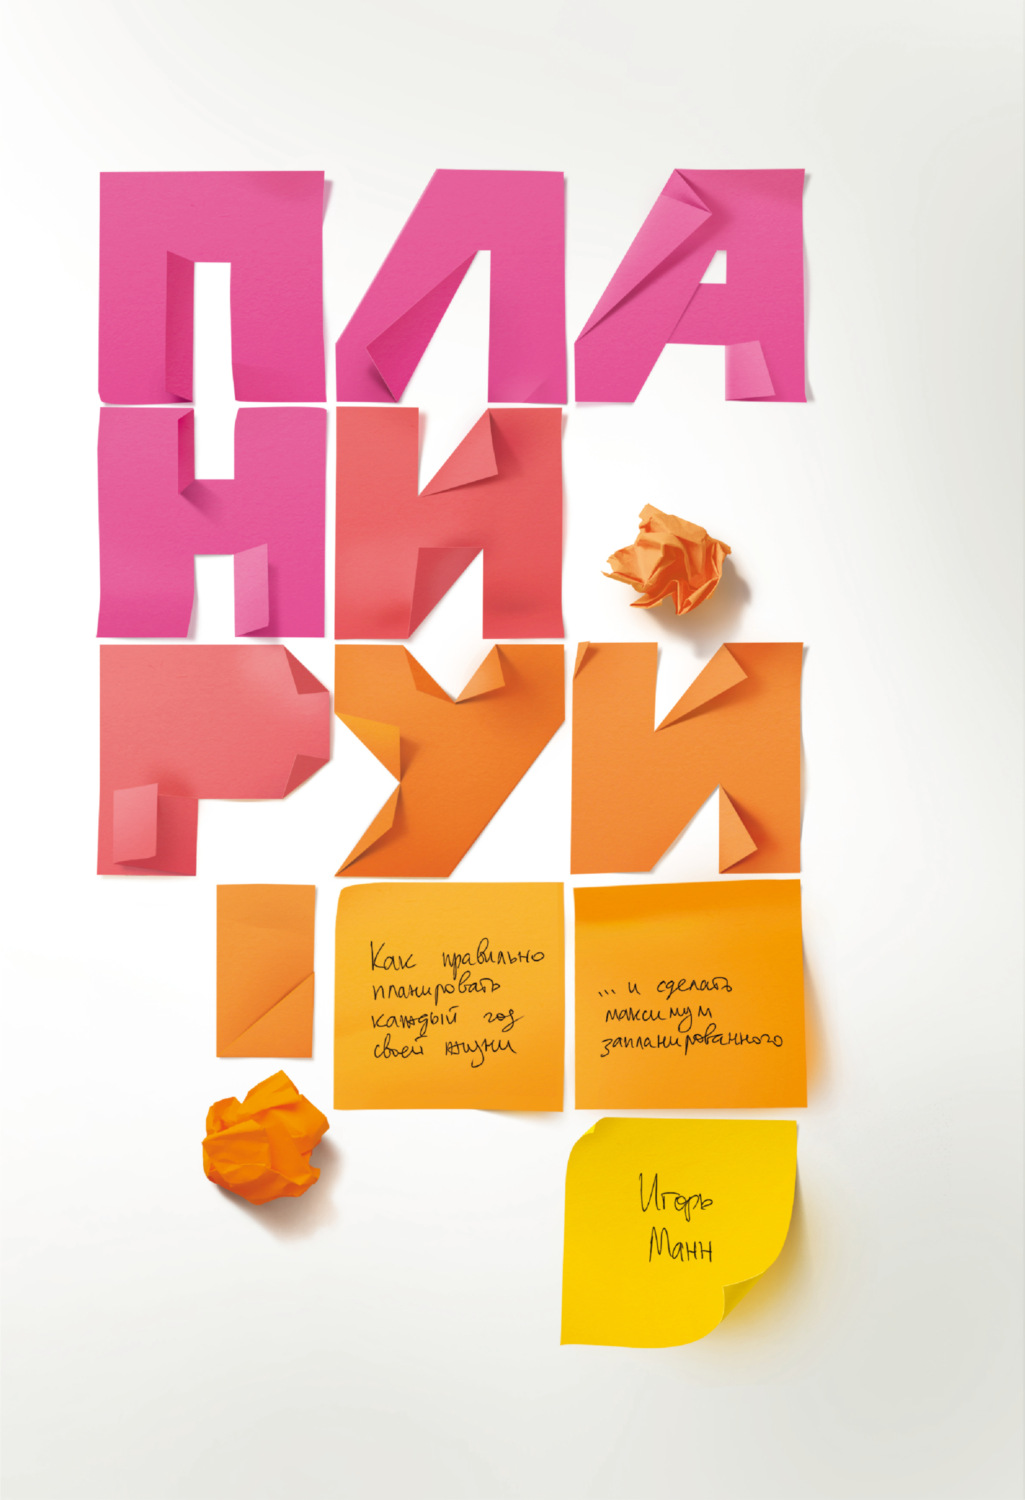 ПЛА
НИ
РУЙ
!
Как правильно
планировать
каждый год
своей жизни
... и сделать
максимум
запланированного
Игорь
Манн